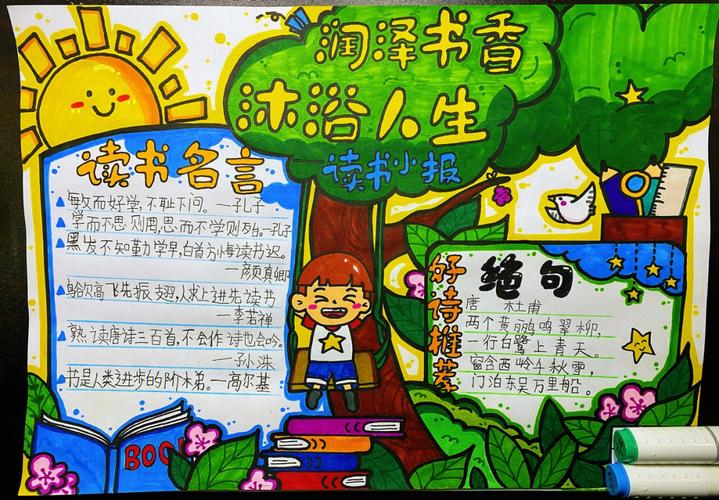 润泽书香
沐浴人生
—读书小报
读书名言
敏而好学,不耻下问。—孔子
学而不思则罔,思而不学则殆。—孔子
黑发不知勤学早,白首方悔读书迟。
—颜真卿
高飞先振翅,人求上进先读书
—李若禅
熟读唐诗三百首,不会作诗也会吟。
—孙洙
书是人类进步的阶梯。—高尔基
BOOK
好诗推荐
绝句
唐 杜甫
两个黄鹂鸣翠柳,
一行白鹭上青天。
窗含西岭千秋雪,
门泊东吴万里船。